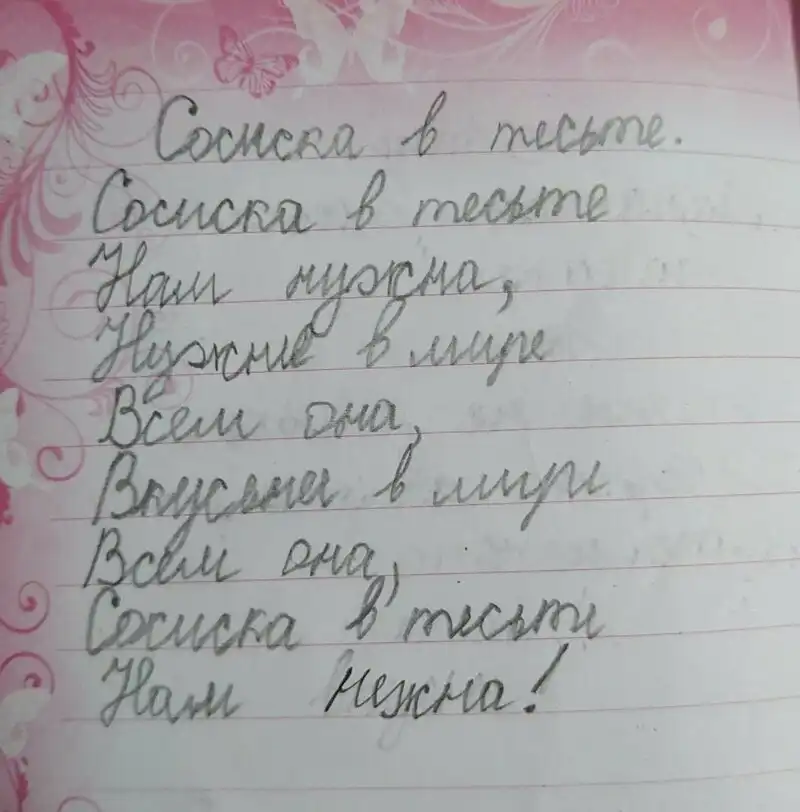 Сосиска в тесьте.
Сосиска в тесьте
Нам нужна,
Нужне в мире
Всем она,
Вкусяней в мире
Всем она,
Сосиска в тесьте
Нам нежна!